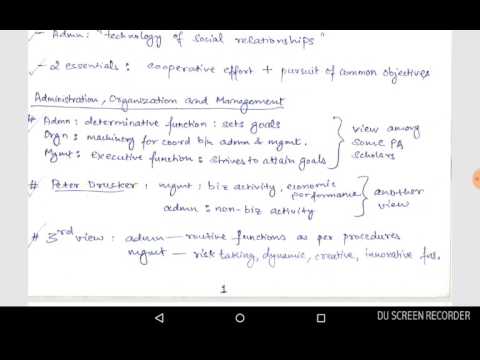 - Admn: "technology of social relationships"
- 2 essentials: cooperative effort + pursuit of common objectives
Administration, Organization and Management
# Admn: determinative function: sets goals
Orgn: machinery for coord b/n admn & mgmt.
Mgmt: Executive function: strives to attain goals
view among
some PA
scholars
# Peter Drucker: mgmt: biz activity, economic performance
admn: non-biz activity
another
view
# 3rd view: admn — routine functions as per procedures
mgmt — risk taking, dynamic, creative, innovative fns.
1
DU SCREEN RECORDER